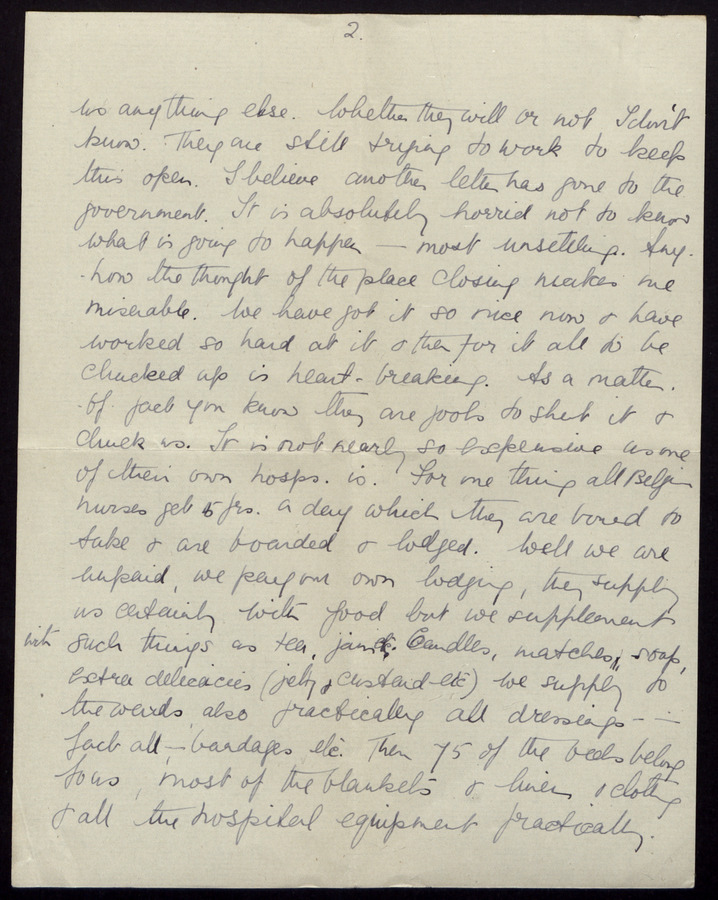 2.
us anything else. Whether they will or not I don't
know. They are still trying to work to keep
this open. I believe another letter has gone to the
government. It is absolutely horrid not to know
what is going to happen — most unsettling. Any-
-how the thought of the place closing makes me
miserable. We have got it so nice now & have
worked so hard at it & then for it all to be
chucked up is heart-breaking. As a matter.
of fact you know they are fools to shut it &
chuck us. It is not nearly so expensive as one
of their own hosps. is. For one thing all Belgian
nurses get 5 frs. a day which they are bound to
take & are boarded & lodged. Well we are
unpaid, we pay our own lodging, they supply
us certainly with food but we supplement
with such things as tea, jam, candles, matches, soap,
extra delicacies (jelly, custard etc) we supply to
the wards also practically all dressings - —
fact all — bandages etc. Then 75 of the beds belong
to us, most of the blankets & linen & clothing
& all the hospital equipment practically.